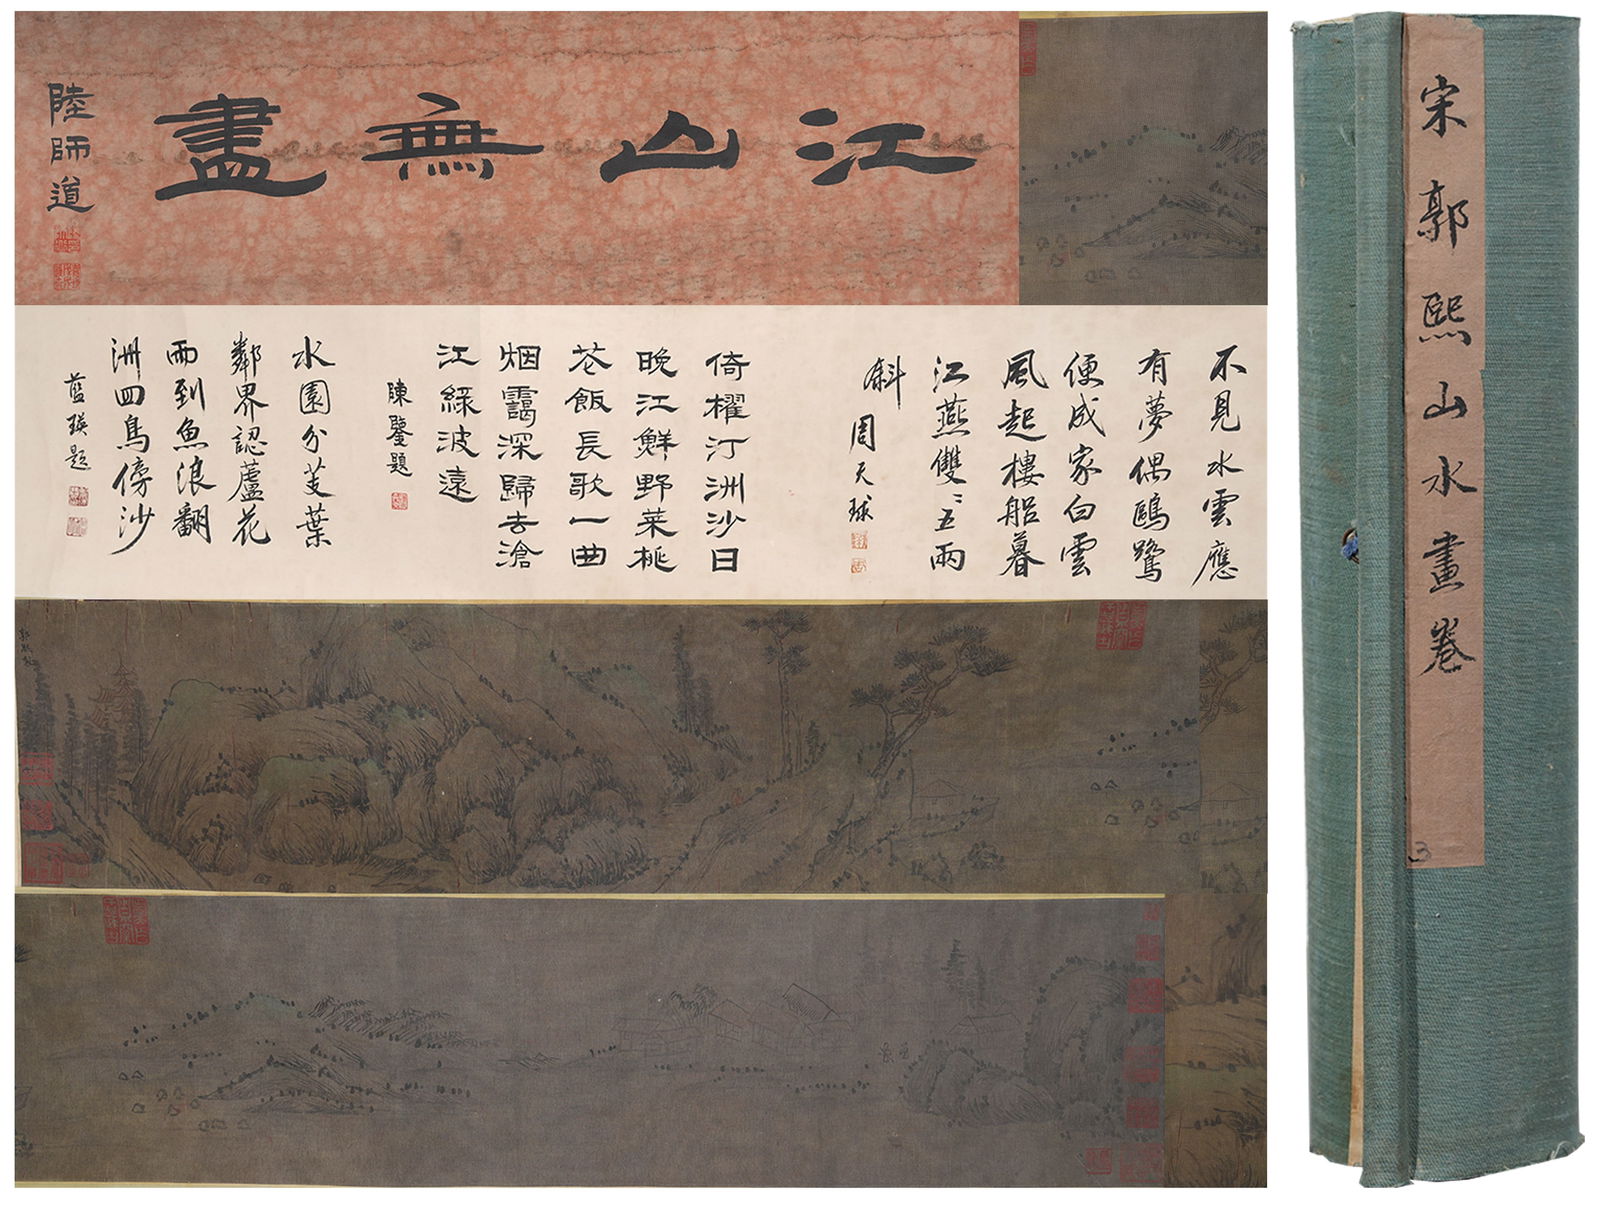 江山無盡
陸師道
不見水雲應
有夢偶鷗鷺
便成家白雲
風起樓船暮
江燕雙〻五兩
斜
周天球
倚櫂汀洲沙日
晚江鮮野菜桃
花飯長歌一曲
烟靄深歸去滄
江綠波遠
陳鑒題
水園分芰葉
鄰界認蘆花
雨到魚浪翻
洲四鳥傍沙
藍瑛題
宋郭熙山水畫卷
3